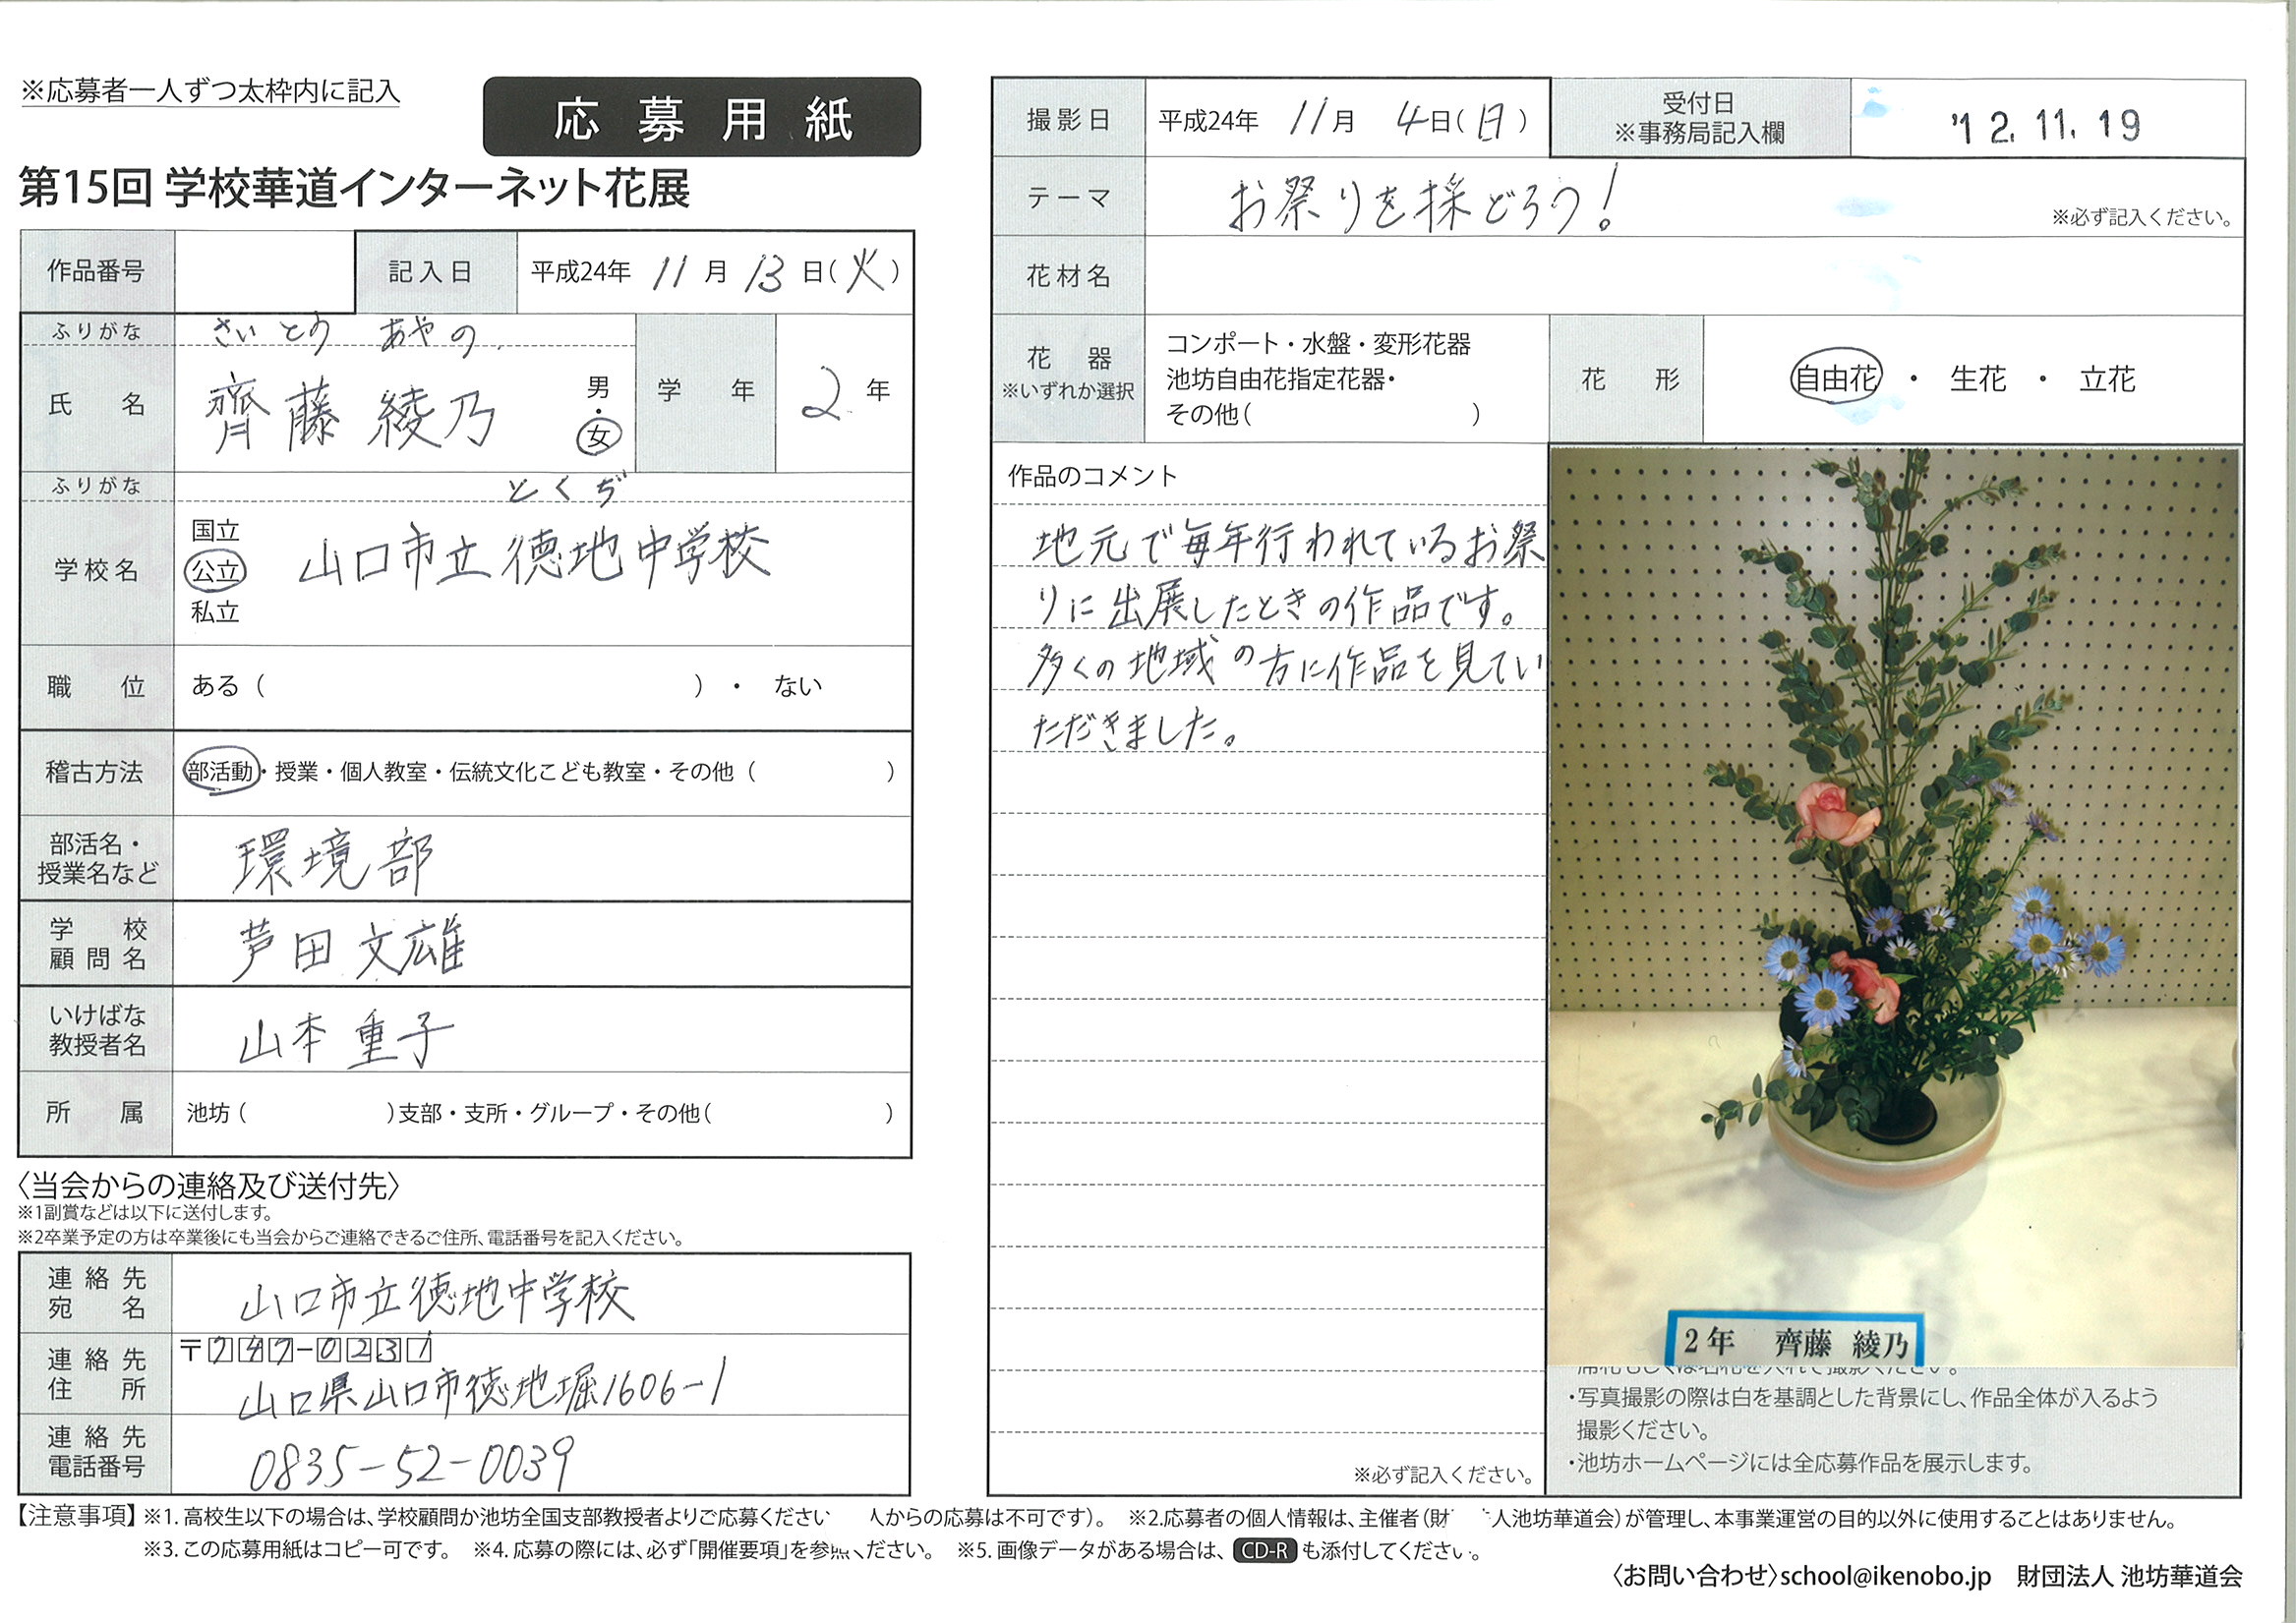 ※応募者一人ずつ太枠内に記入
応募用紙
第15回 学校華道インターネット花展
作品番号
記入日 平成24年 11月 13日(火)
ふりがな さいとう あやの
氏名 齊藤 綾乃 男・女
学年 2年
ふりがな とくぢ
学校名 国立 公立 私立 山口市立徳地中学校
職位 ある( )・ ない
稽古方法 部活動・授業・個人教室・伝統文化こども教室・その他( )
部活名・授業名など 環境部
学校顧問名 芦田 文雄
いけばな教授者名 山本 重子
所属 池坊( )支部・支所・グループ・その他( )
〈当会からの連絡及び送付先〉
※1副賞などは以下に送付します。
※2卒業予定の方は卒業後にも当会からご連絡できるご住所、電話番号を記入ください。
連絡先宛名 山口市立徳地中学校
連絡先住所 〒747-0231
山口県山口市徳地堀1606-1
連絡先電話番号 0835-52-0039
撮影日 平成24年 11月 4日(日)
受付日 ※事務局記入欄 '12.11.19
テーマ お祭りを採どろう! ※必ず記入ください。
花材名
花器 ※いずれか選択
コンポート・水盤・変形花器
池坊自由花指定花器・
その他( )
花形 自由花 ・ 生花 ・ 立花
作品のコメント
地元で毎年行われているお祭
りに出展したときの作品です。
多くの地域の方に作品を見てい
ただきました。
※必ず記入ください。
2年 齊藤 綾乃
・写真撮影の際は白を基調とした背景にし、作品全体が入るよう
撮影ください。
・池坊ホームページには全応募作品を展示します。
【注意事項】※1. 高校生以下の場合は、学校顧問か池坊全国支部教授者よりご応募ください 人からの応募は不可です)。 ※2.応募者の個人情報は、主催者(財 人池坊華道会)が管理し、本事業運営の目的以外に使用することはありません。
※3. この応募用紙はコピー可です。 ※4. 応募の際には、必ず「開催要項」を参照ください。 ※5. 画像データがある場合は、CD-Rも添付してください。
〈お問い合わせ〉school@ikenobo.jp 財団法人 池坊華道会